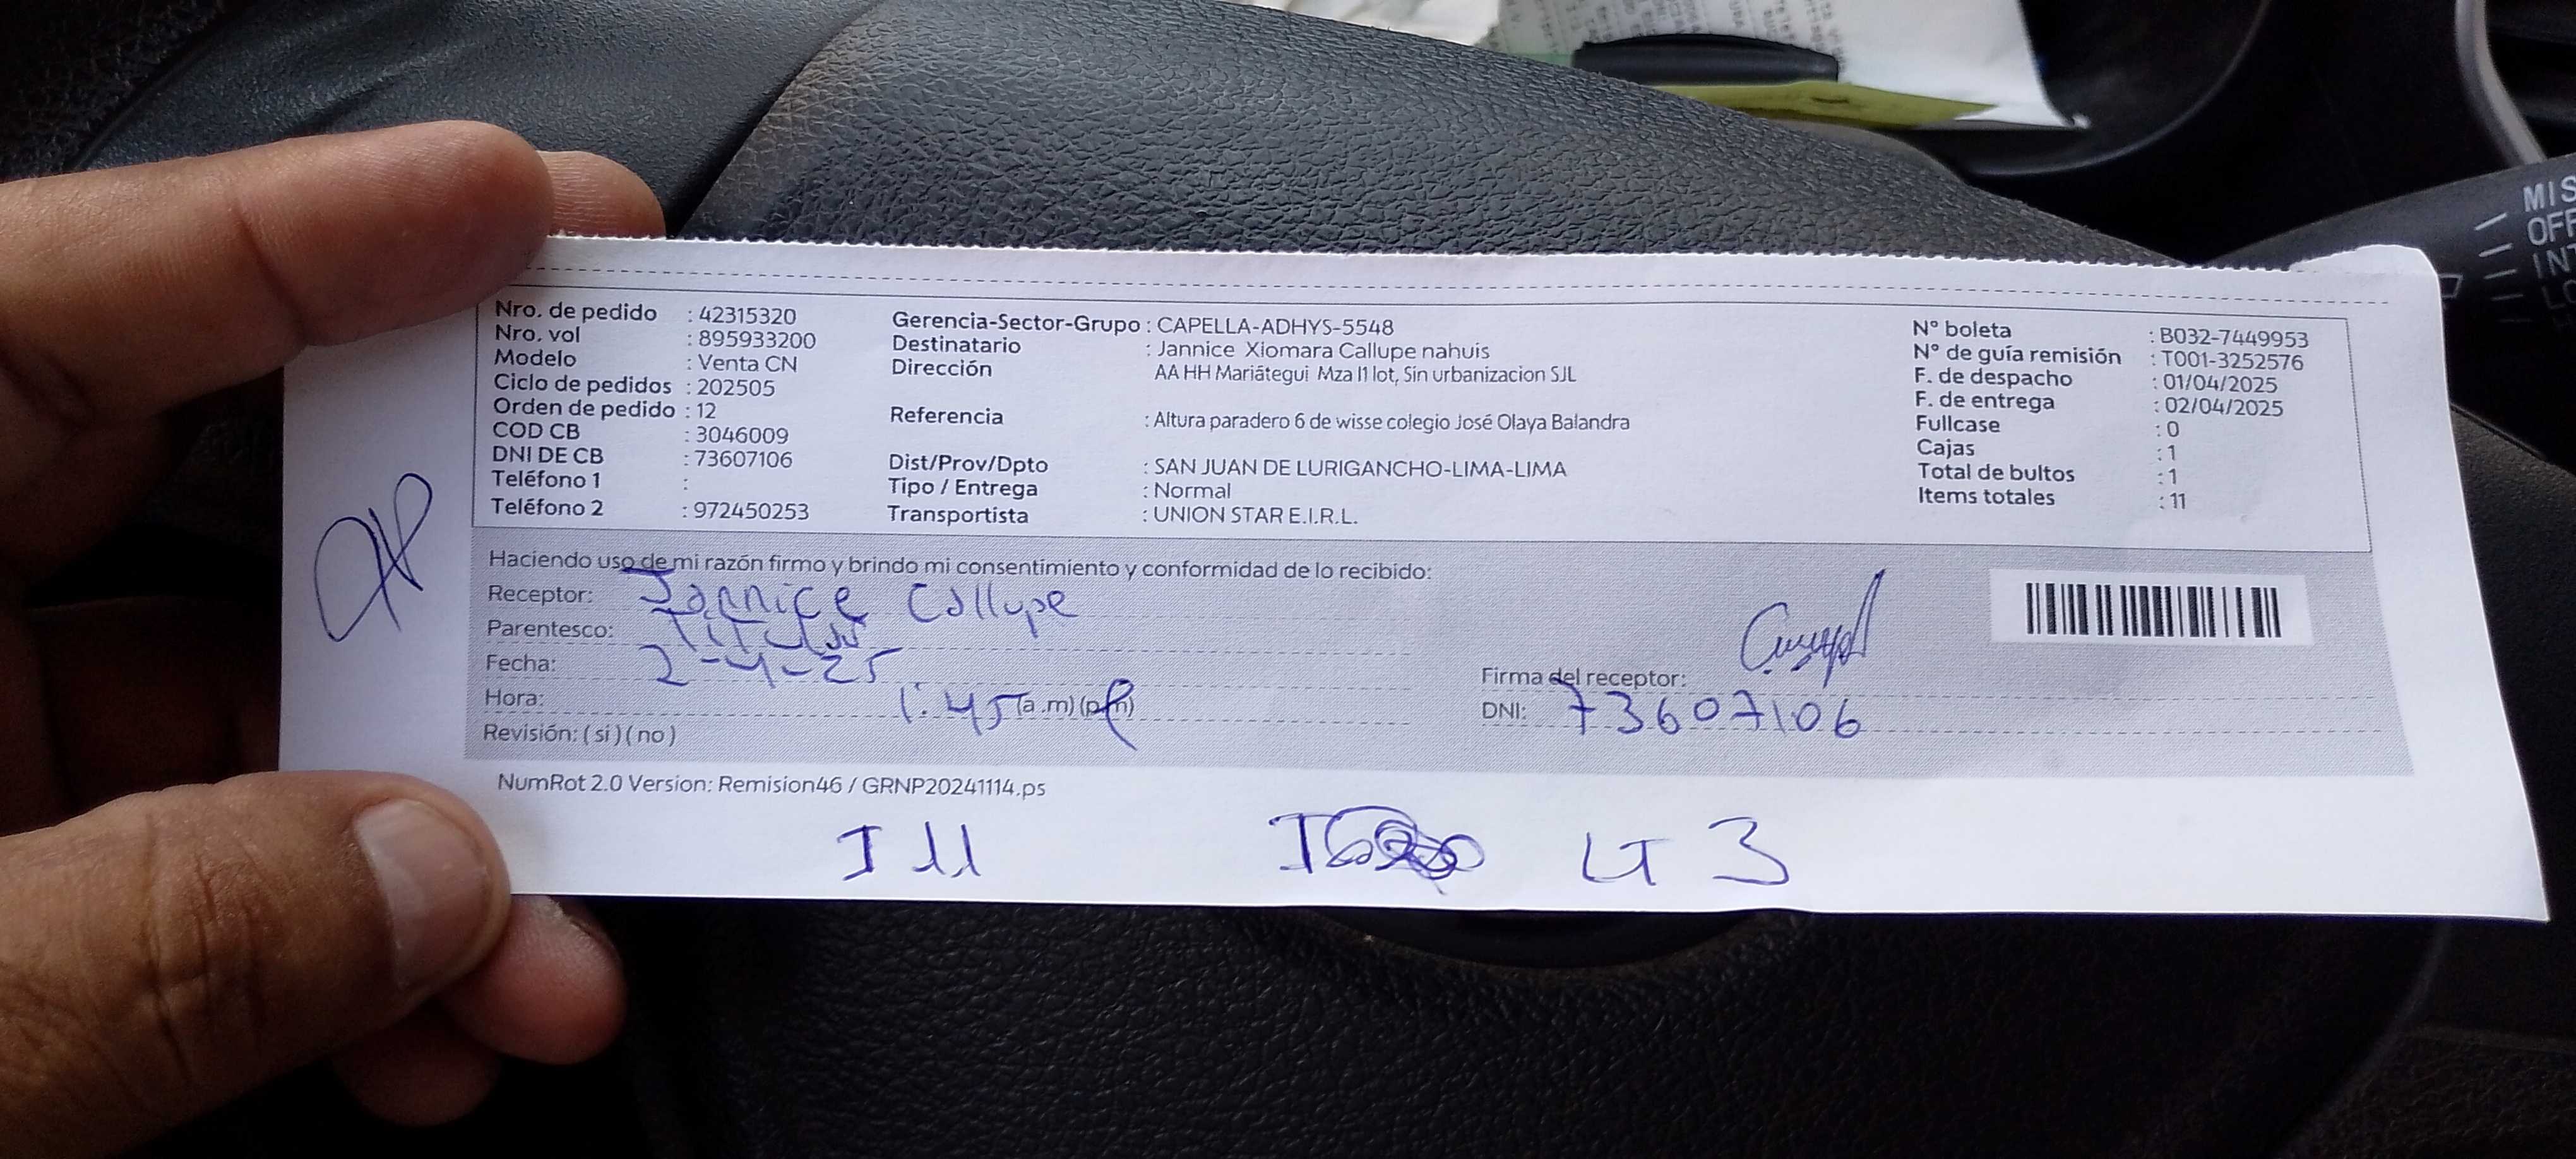 Nro. de pedido : 42315320
Nro. vol : 895933200
Modelo : Venta CN
Ciclo de pedidos : 202505
Orden de pedido : 12
COD CB : 3046009
DNI DE CB : 73607106
Teléfono 1 :
Teléfono 2 : 972450253
Gerencia-Sector-Grupo : CAPELLA-ADHYS-5548
Destinatario : Jannice Xiomara Callupe nahuis
Dirección AA HH Mariátegui Mza I1 lot, Sin urbanizacion SJL
Referencia : Altura paradero 6 de wisse colegio José Olaya Balandra
Dist/Prov/Dpto : SAN JUAN DE LURIGANCHO-LIMA-LIMA
Tipo / Entrega : Normal
Transportista : UNION STAR E.I.R.L.
N° boleta : B032-7449953
N° de guía remisión : T001-3252576
F. de despacho : 01/04/2025
F. de entrega : 02/04/2025
Fullcase : 0
Cajas : 1
Total de bultos : 1
Items totales : 11
Haciendo uso de mi razón firmo y brindo mi consentimiento y conformidad de lo recibido:
Receptor: Jannice Callupe
Parentesco: Titular
Fecha: 2-4-25
Hora: 1:45 (a.m) (p.m)
Revisión: (si) (no)
Firma del receptor:
DNI: 73607106
NumRot 2.0 Version: Remision46 / GRNP20241114.ps
I 11 LT 3
MIS
OFF
INT
LO